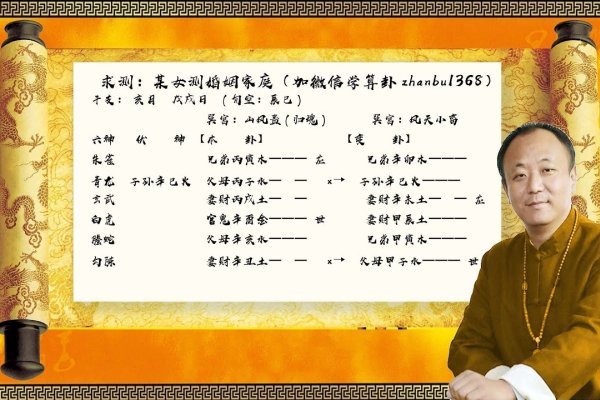 求测：某女测婚姻家庭（加微信学算卦zhanbu1368）
干支：亥月 戊戌日 （旬空：辰巳）
巽宫：山风蛊（归魂） 巽宫：风天小畜
六神 伏 神 【本 卦】 【变 卦】
朱雀 兄弟丙寅木——— 应 兄弟辛卯木———
青龙 子孙辛巳火 父母丙子水— — ×→ 子孙辛巳火———
玄武 妻财丙戌土— — 妻财辛未土— — 应
白虎 官鬼辛酉金——— 世 妻财甲辰土———
螣蛇 父母辛亥水——— 兄弟甲寅木———
勾陈 妻财辛丑土— — ×→ 父母甲子水——— 世